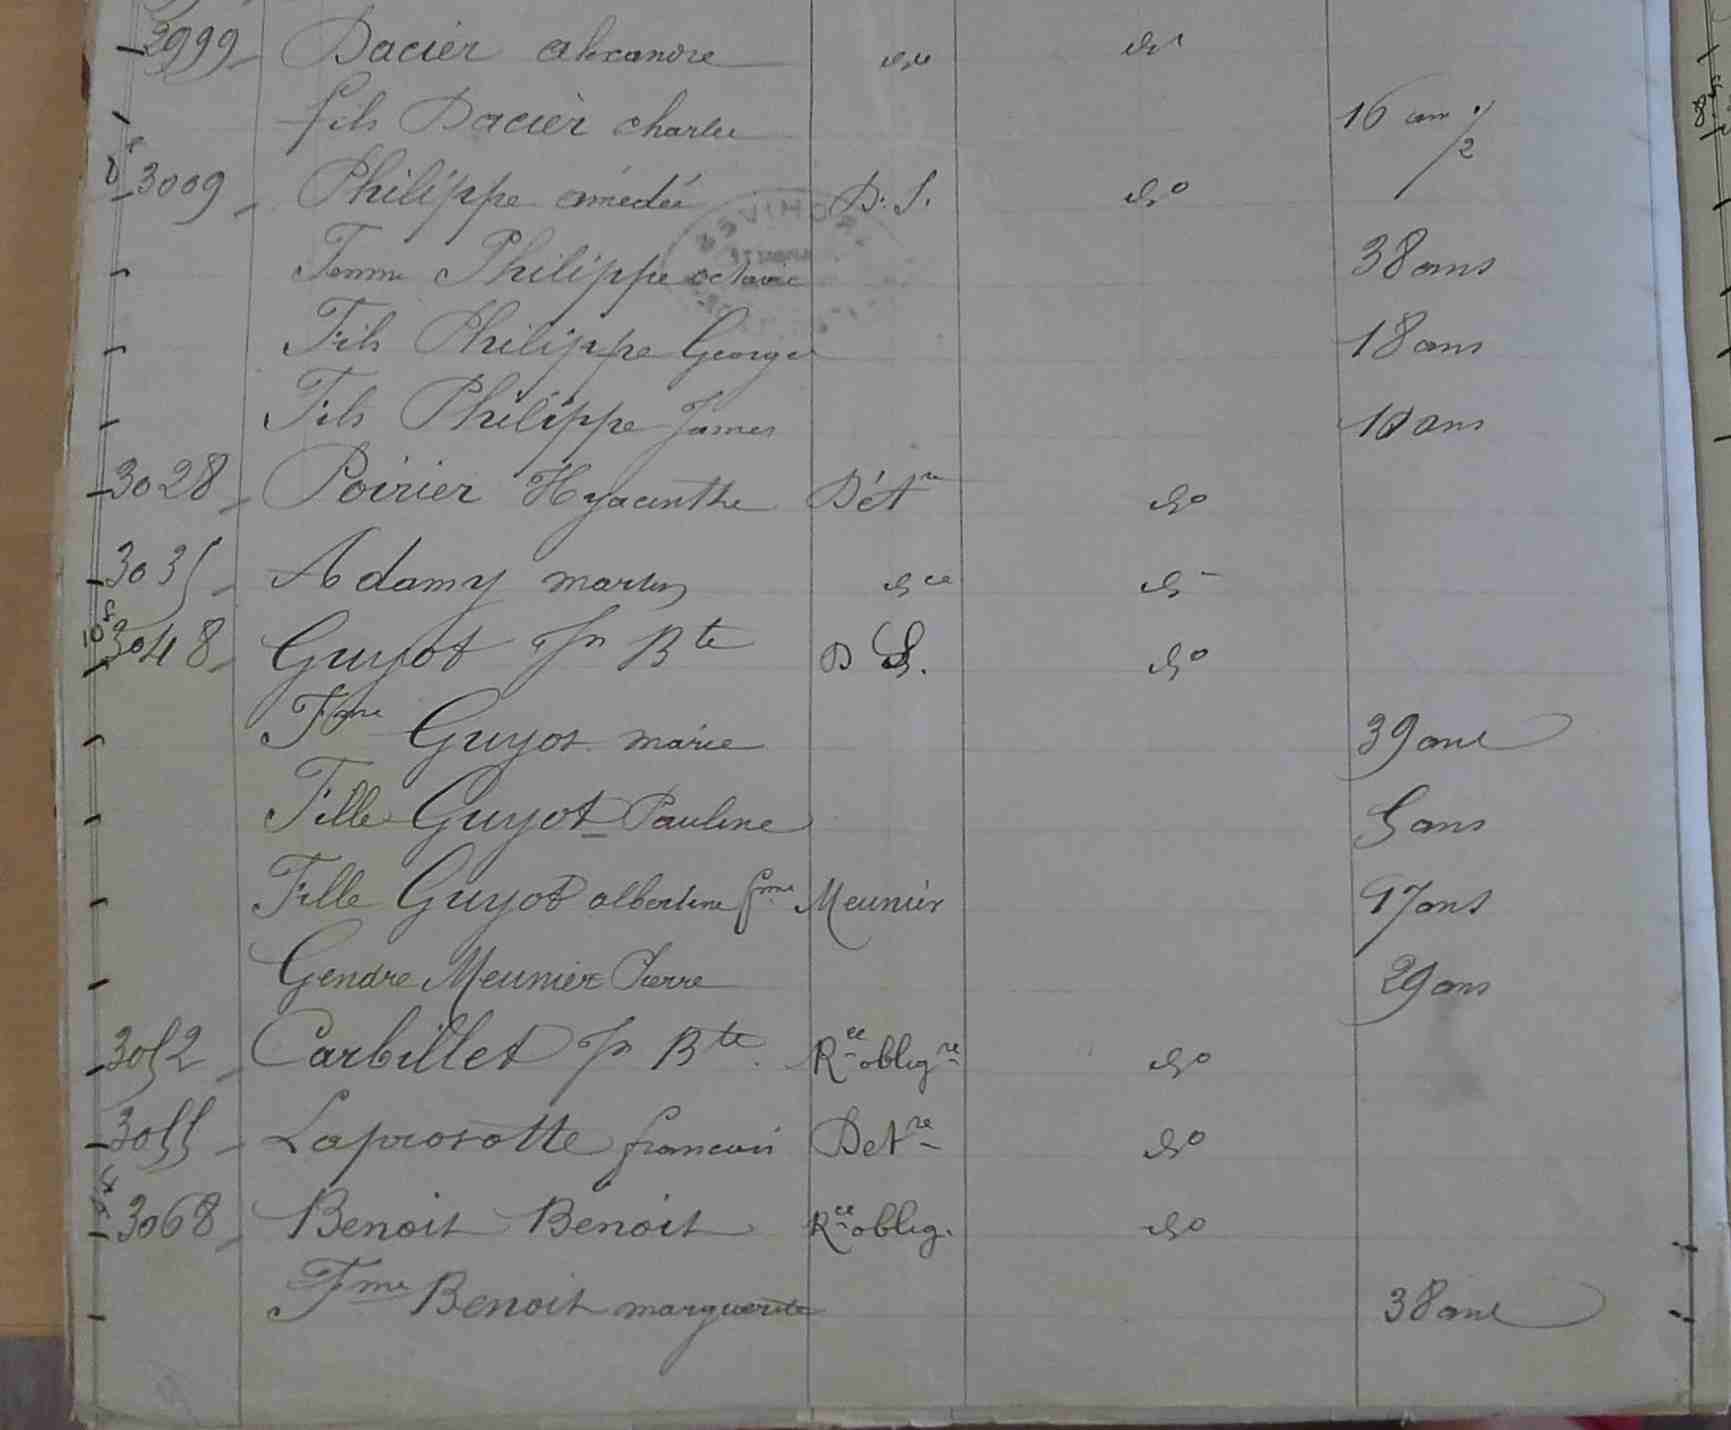 2999 Dacier alexandre d° d°
fils Dacier charles 16 ans 1/2
3009 Philippe amédée D. S. d°
Femme Philippe octavie 38 ans
Fils Philippe Georges 18 ans
Fils Philippe James 10 ans
3028 Poirier Hyacinthe Dét re d°
3035 Adamy martin d° d°
3048 Guyot Jn Bte D S. d°
Fme Guyot marie 39 ans
Fille Guyot Pauline 5 ans
Fille Guyot albertine fme Meunier 17 ans
Gendre Meunier Pierre 29 ans
3052 Carbillet Jn Bte Rce oblig re d°
3055 Laprosotte francois Det re d°
3068 Benoit Benoit Rce oblig. d°
Fme Benoit marguerite 38 ans